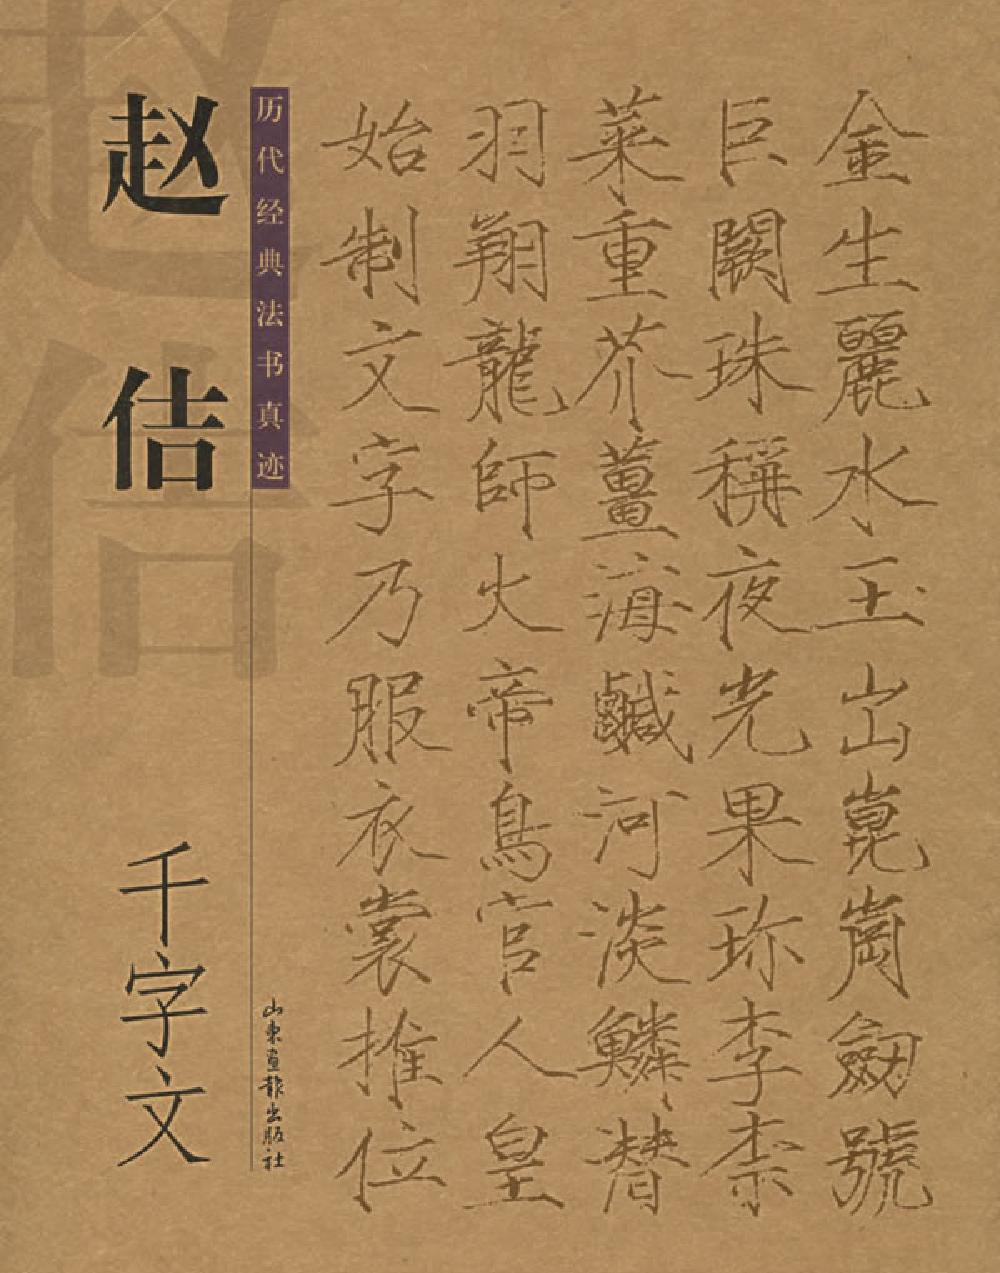 金生麗水玉出崑崗劒號
巨闕珠稱夜光果珎李柰
菜重芥薑海鹹河淡鱗潛
羽翔龍師火帝鳥官人皇
始制文字乃服衣裳推位
历代经典法书真迹
赵佶
千字文
山东画报出版社
赵佶